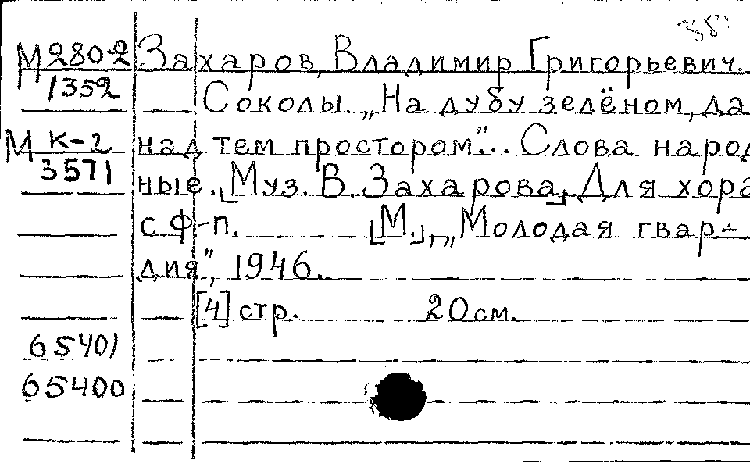 М 280-2 Захаров, Владимир Григорьевич.
1352 Соколы. „На дубу зелёном, да
М К-2 над тем простором"... Слова народ
3571 ные. [Муз. В. Захарова]. Для хора
с ф-п. [М.], „Молодая гвар-
дия", 1946.
[4] стр. 20 см.
65401
65400